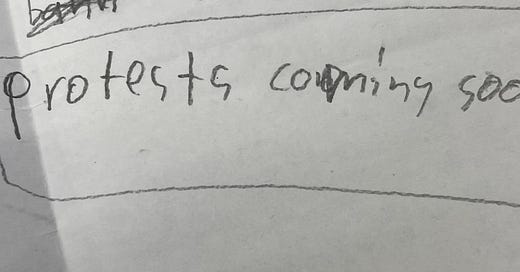 protests coming soo